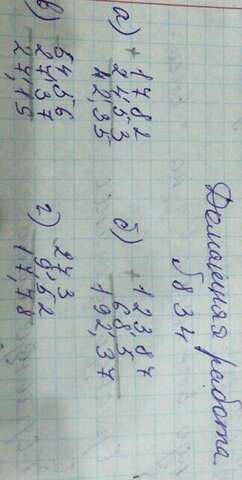 Домашняя работа
№834
а) + 17 82
24,53
42,35
б) + 123,87
68,5
192,37
в) 54 56
27,37
27,19
г) 27 3
9,52
17,78